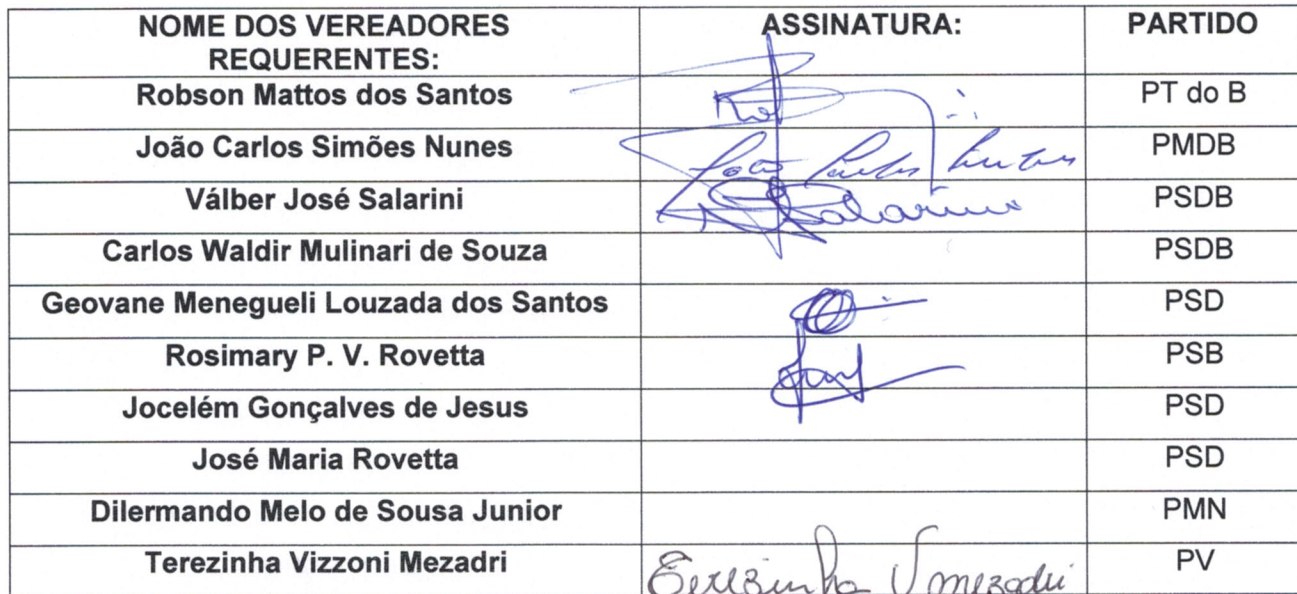 NOME DOS VEREADORES REQUERENTES: ASSINATURA: PARTIDO
Robson Mattos dos Santos PT do B
João Carlos Simões Nunes João Carlos PMDB
Válber José Salarini Salarini PSDB
Carlos Waldir Mulinari de Souza PSDB
Geovane Menegueli Louzada dos Santos PSD
Rosimary P. V. Rovetta PSB
Jocelém Gonçalves de Jesus PSD
José Maria Rovetta PSD
Dilermando Melo de Sousa Junior PMN
Terezinha Vizzoni Mezadri Terezinha V mezadri PV